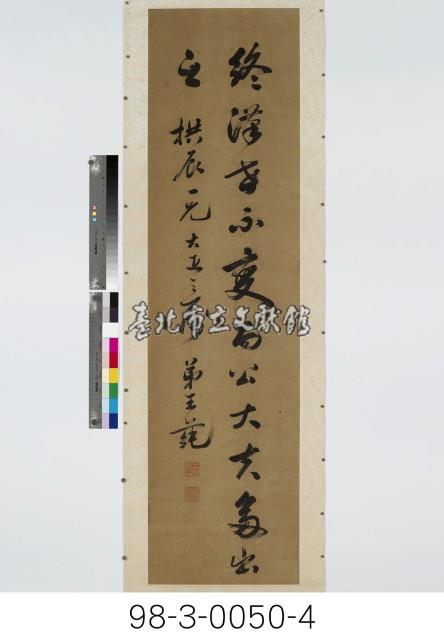 終漢世不變而公大夫多出
拱辰一兄大 之 弟王
臺北市立文獻館
98-3-0050-4